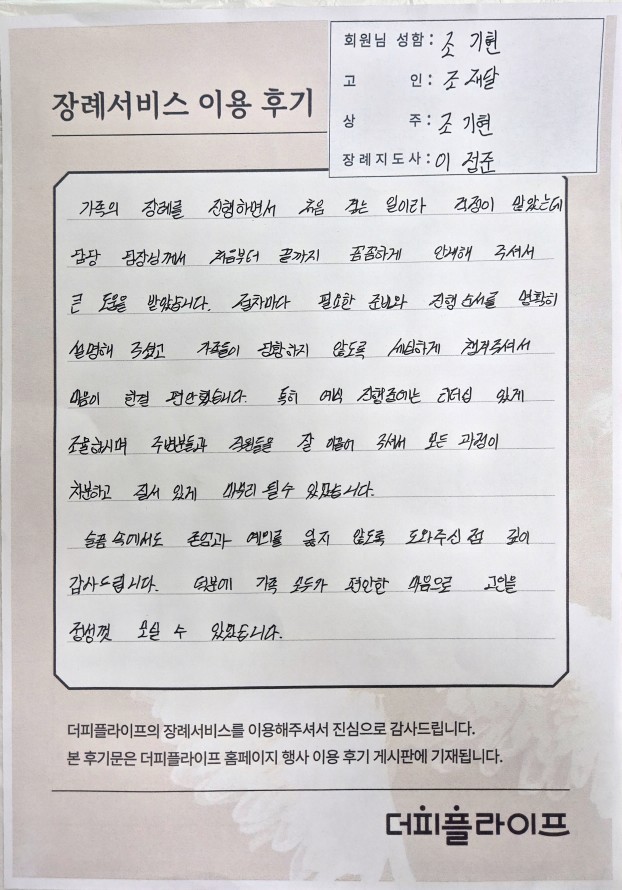 장례서비스 이용 후기
회원님 성함 : 조 기현
고 인 : 조 재달
상 주 : 조 기현
장례지도사 : 이 접준
가족의 장례를 진행하면서 처음 겪는 일이라 걱정이 많았는데
담당 팀장님께서 처음부터 끝까지 꼼꼼하게 안내해 주셔서
큰 도움을 받았습니다. 절차마다 필요한 준비와 진행 순서를 명확히
설명해 주셨고 가족들이 당황하지 않도록 세심하게 챙겨주셔서
마음이 한결 편안했습니다. 특히 예식 진행중에는 리더십 있게
조율하시며 주변분들과 직원들을 잘 이끌어 주셔서 모든 과정이
차분하고 질서 있게 마무리 될 수 있었습니다.
슬픔 속에서도 존엄과 예의를 잃지 않도록 도와주신 점 깊이
감사드립니다. 덕분에 가족 모두가 편안한 마음으로 고인을
정성껏 모실 수 있었습니다.
더피플라이프의 장례서비스를 이용해주셔서 진심으로 감사드립니다.
본 후기문은 더피플라이프 홈페이지 행사 이용 후기 게시판에 기재됩니다.
더피플라이프